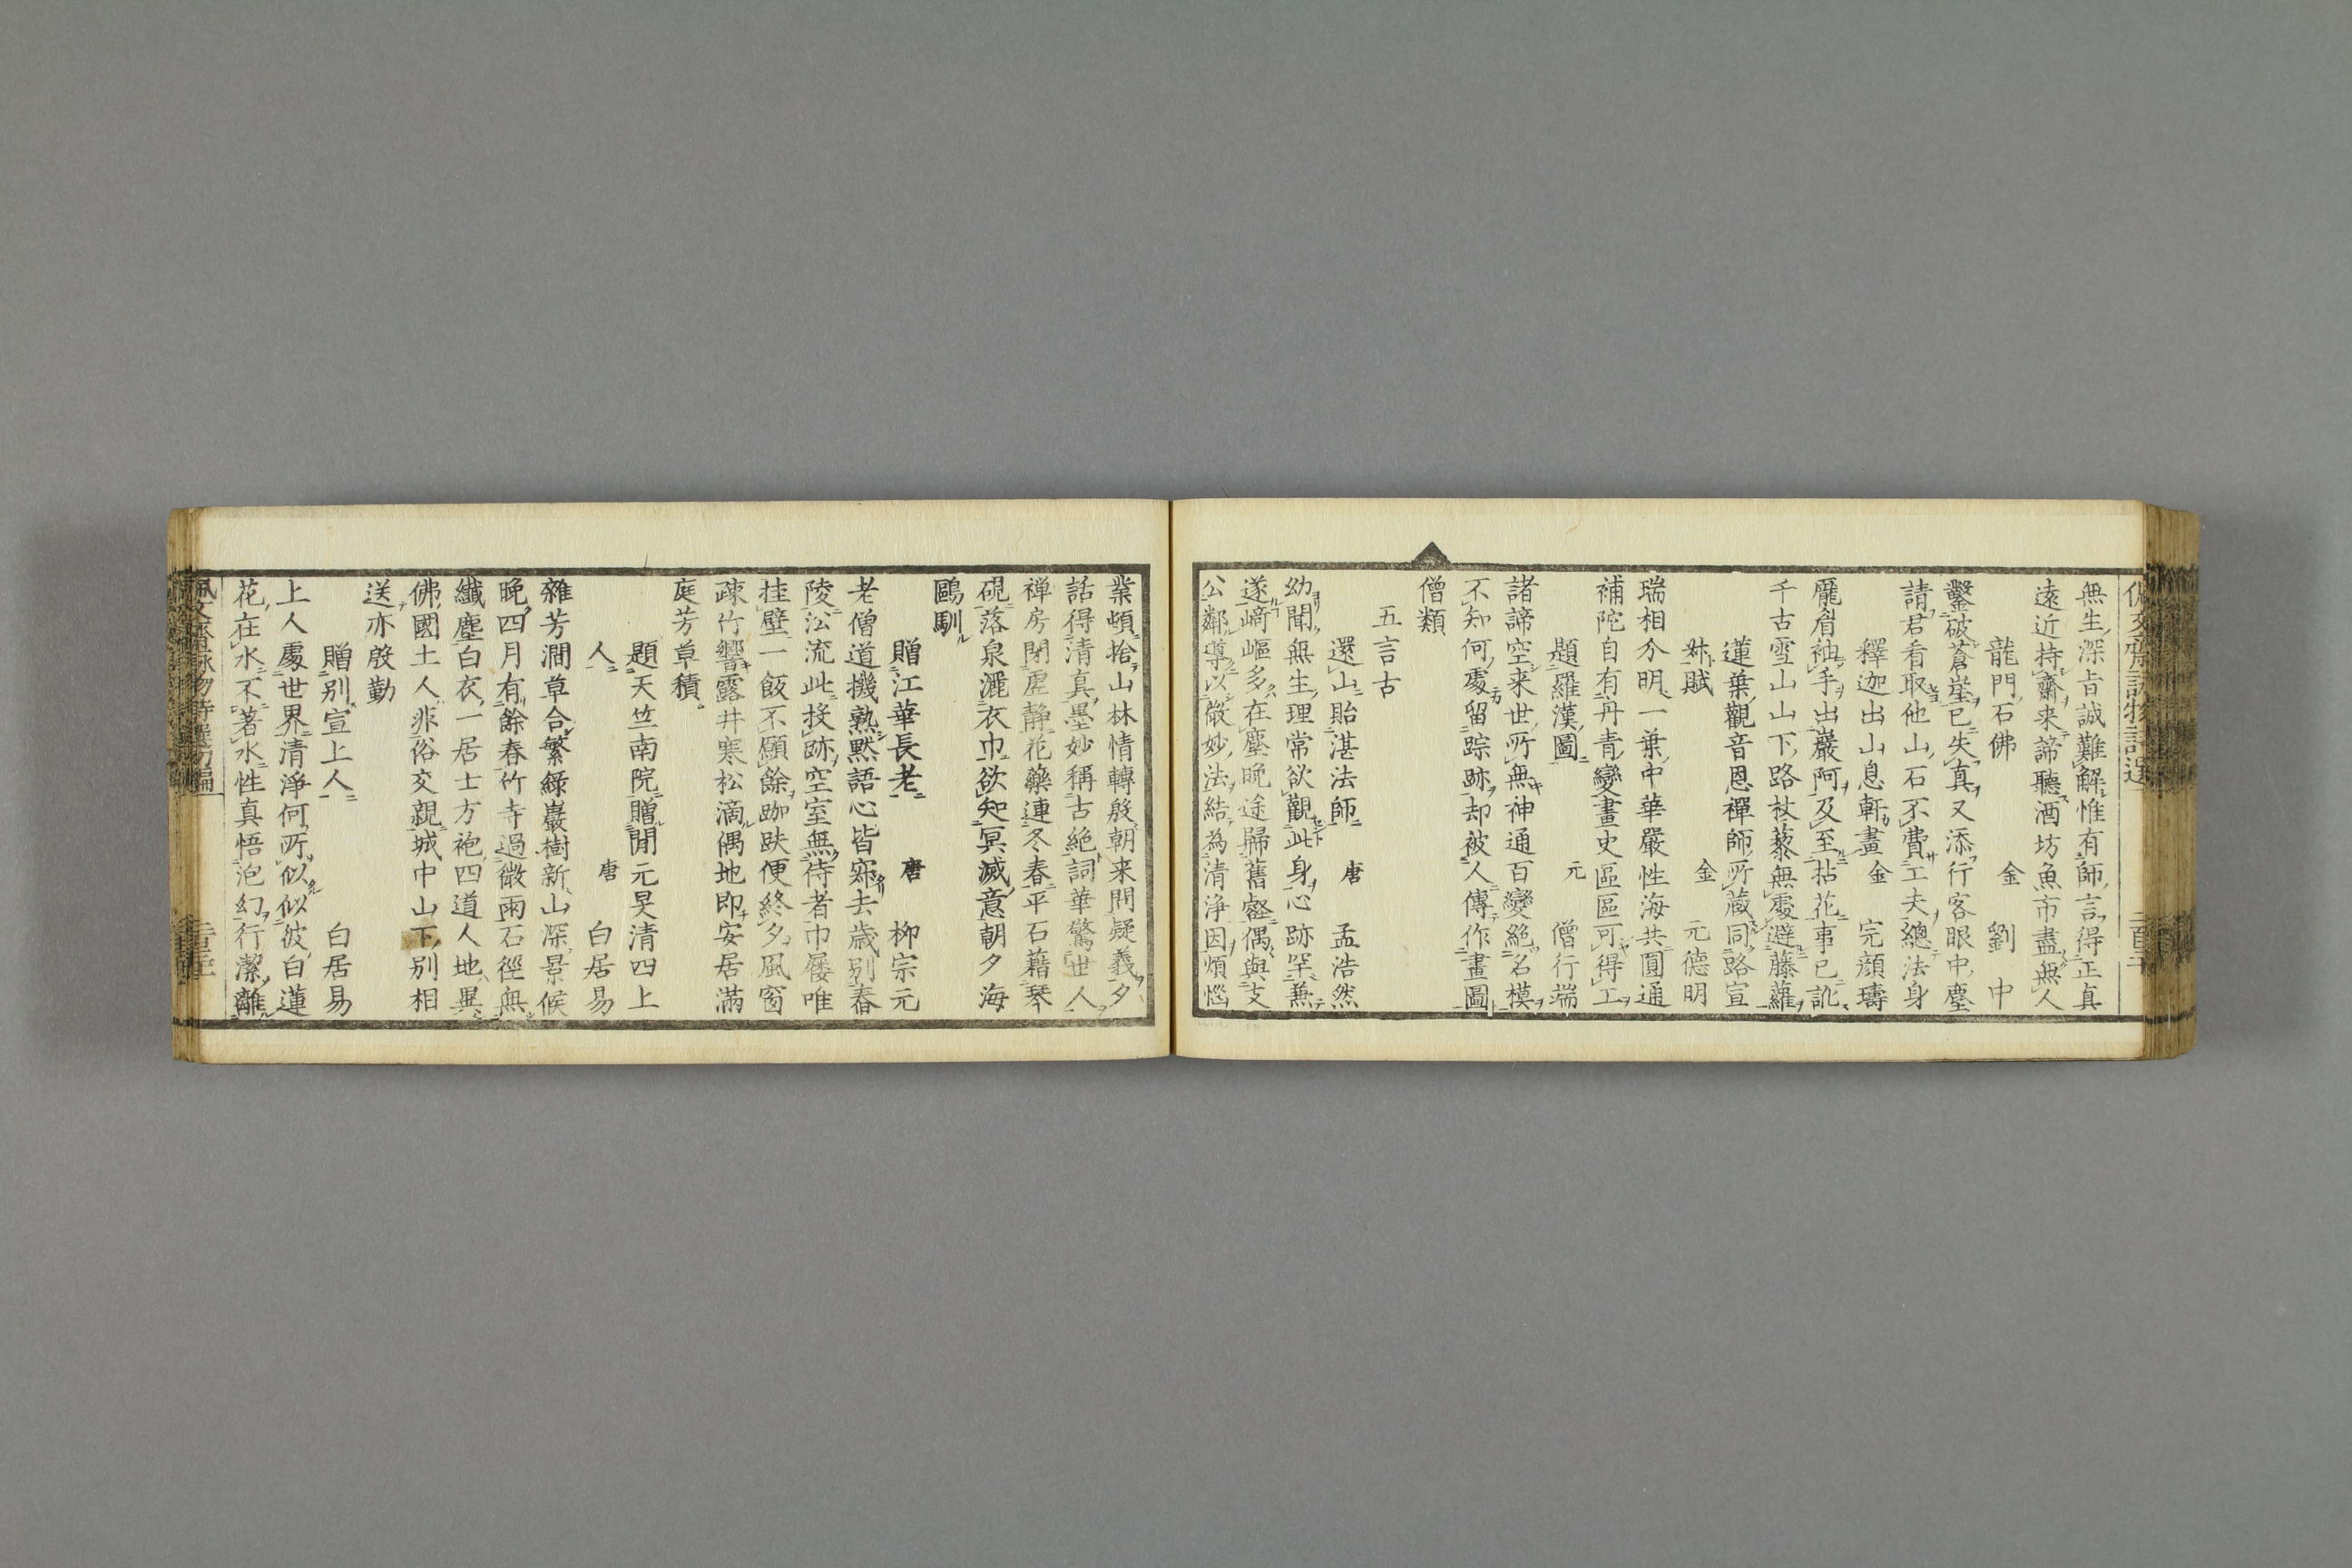 無生深旨誠難解惟有師言得正真
遠近持齋來諦聽酒坊魚市盡無人
龍門石佛 金 劉中
鑿破蒼崖已失真又添行客眼中塵
請君看取他山石不費工夫總法身
釋迦出山息軒畫 金 完顏璹
龐眉袖手出巖阿及至拈花事已訛
千古雪山山下路杖藜無處避藤蘿
蓮葉觀音恩禪師所藏同路宣
叔賦 金 元德明
瑞相分明一葉中華嚴性海共圓通
補陀自有丹青變畫史區區可得工
題羅漢圖 元 僧行端
諸諦空来世所無神通百變絶名模
不知何處留踪跡却被人傳作畫圖
僧類
五言古
還山貽湛法師 唐 孟浩然
幼聞無生理常欲觀此身心跡罕兼
遂崎嶇多在塵晩途歸舊壑偶與支
公鄰導以微妙法結為清浄因煩惱
業頓捨山林情轉殷朝来問疑義夕
話得清真墨妙稱古絶詞華驚世人
禅房閉虚静花藥連冬春平石藉琴
硯落泉灑衣巾欲知冥滅意朝夕海
鷗馴
贈江華長老 唐 柳宗元
老僧道機熟黙語心皆寂去歳別舂
陵㳂流此投跡空室無侍者巾屨唯
挂壁一飯不願餘跏趺便終夕風窗
疎竹響露井寒松滴偶地即安居滿
庭芳草積
題天竺南院贈閒元旻清四上
人 唐 白居易
雜芳澗草合繁緑巖樹新山深景候
晩四月有餘春竹寺過微雨石徑無
纖塵白衣一居士方袍四道人地異
佛國土人非俗交親城中山下別相
送亦殷勤
贈別宣上人 白居易
上人處世界清淨何所似似彼白蓮
花在水不著水性真悟泡幻行潔離